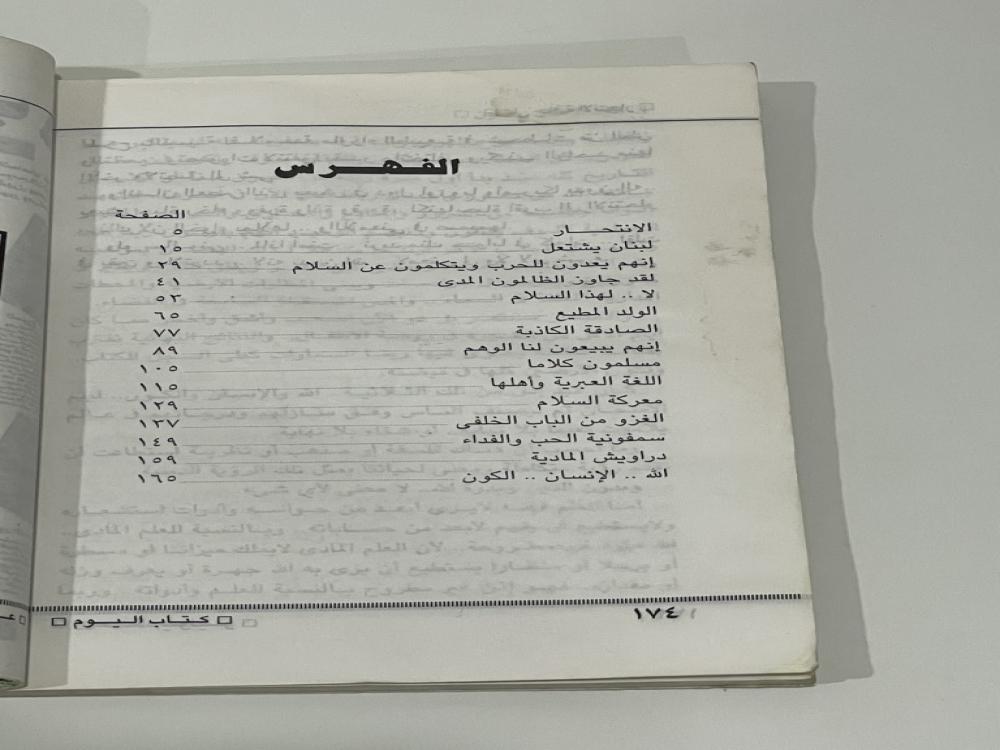 الفهرس
الصفحة
الانتحار ٥
لبنان يشتعل ١٥
إنهم يعدون للحرب ويتكلمون عن السلام ٢٩
لقد جاوز الظالمون المدى ٤١
لا .. لهذا السلام ٥٣
الولد المطيع ٦٥
الصادقة الكاذبة ٧٧
إنهم يبيعون لنا الوهم ٨٩
مسلمون كلاما ١٠٥
اللغة العبرية وأهلها ١١٥
معركة السلام ١٢٩
الغزو من الباب الخلفى ١٣٧
سمفونية الحب والفداء ١٤٩
دراويش المادية ١٥٩
الله .. الإنسان .. الكون ١٦٥
١٧٤
□ كتاب اليوم □